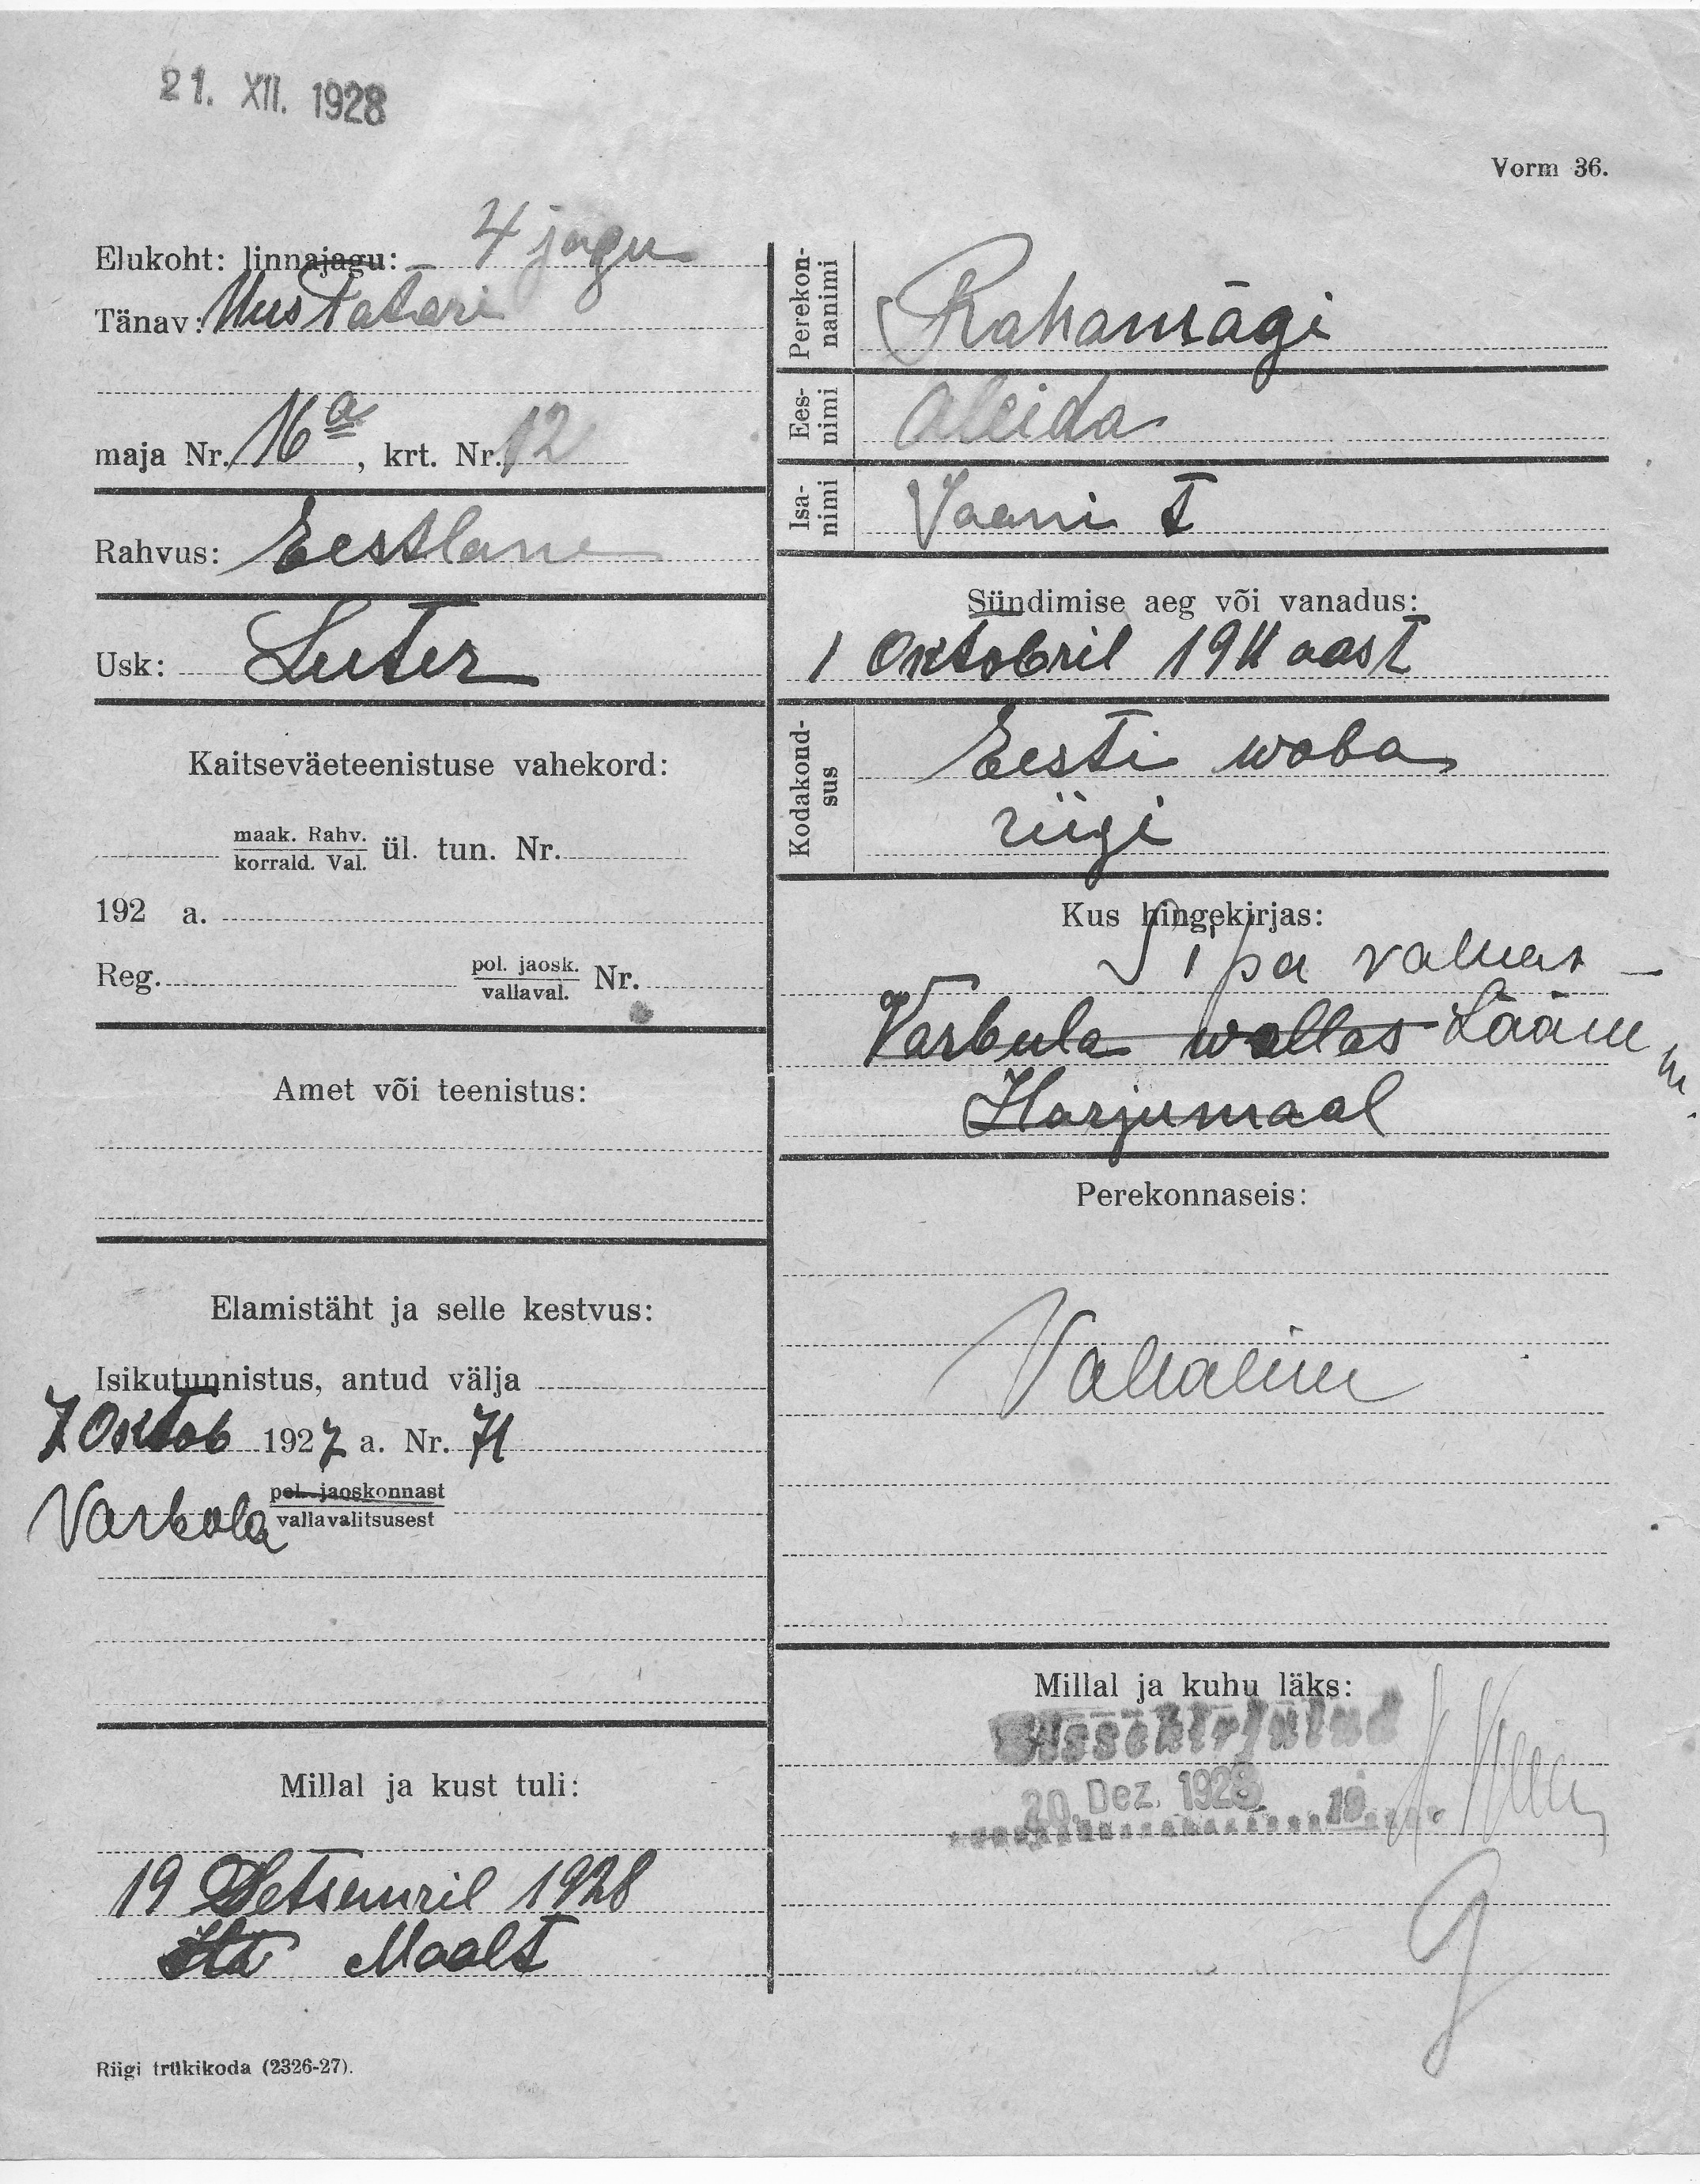 21. XII. 1928
Vorm 36.
Elukoht: linnajagu: 4 jagu
Tänav: Uus Tatari
maja Nr. 16a, krt. Nr. 12
Rahvus: Eestlane
Usk: Luter
Kaitseväeteenistuse vahekord:
maak. Rahv.
korrald. Val. ül. tun. Nr.
192 a.
Reg. pol. jaosk.
vallaval. Nr.
Amet või teenistus:
Elamistäht ja selle kestvus:
Isikutunnistus, antud välja
7 Oktob 1927 a. Nr. 71
Varbola pol. jaoskonnast
vallavalitsusest
Millal ja kust tuli:
19 Detsemril 1928
Maalt
Riigi trükikoda (2326-27).
Perekon-
nanimi Rahamägi
Ees-
nimi Aleida
Isa-
nimi Jaani t
Sündimise aeg või vanadus:
1 Oktobril 1911 aast
Kodakond-
sus Eesti waba
riigi
Kus hingekirjas:
Sipa vallas
Varbula wallas Lääne m.
Harjumaal
Perekonnaseis:
Vallaline
Millal ja kuhu läks:
Sissekirjutud
20. Dez. 1928 19